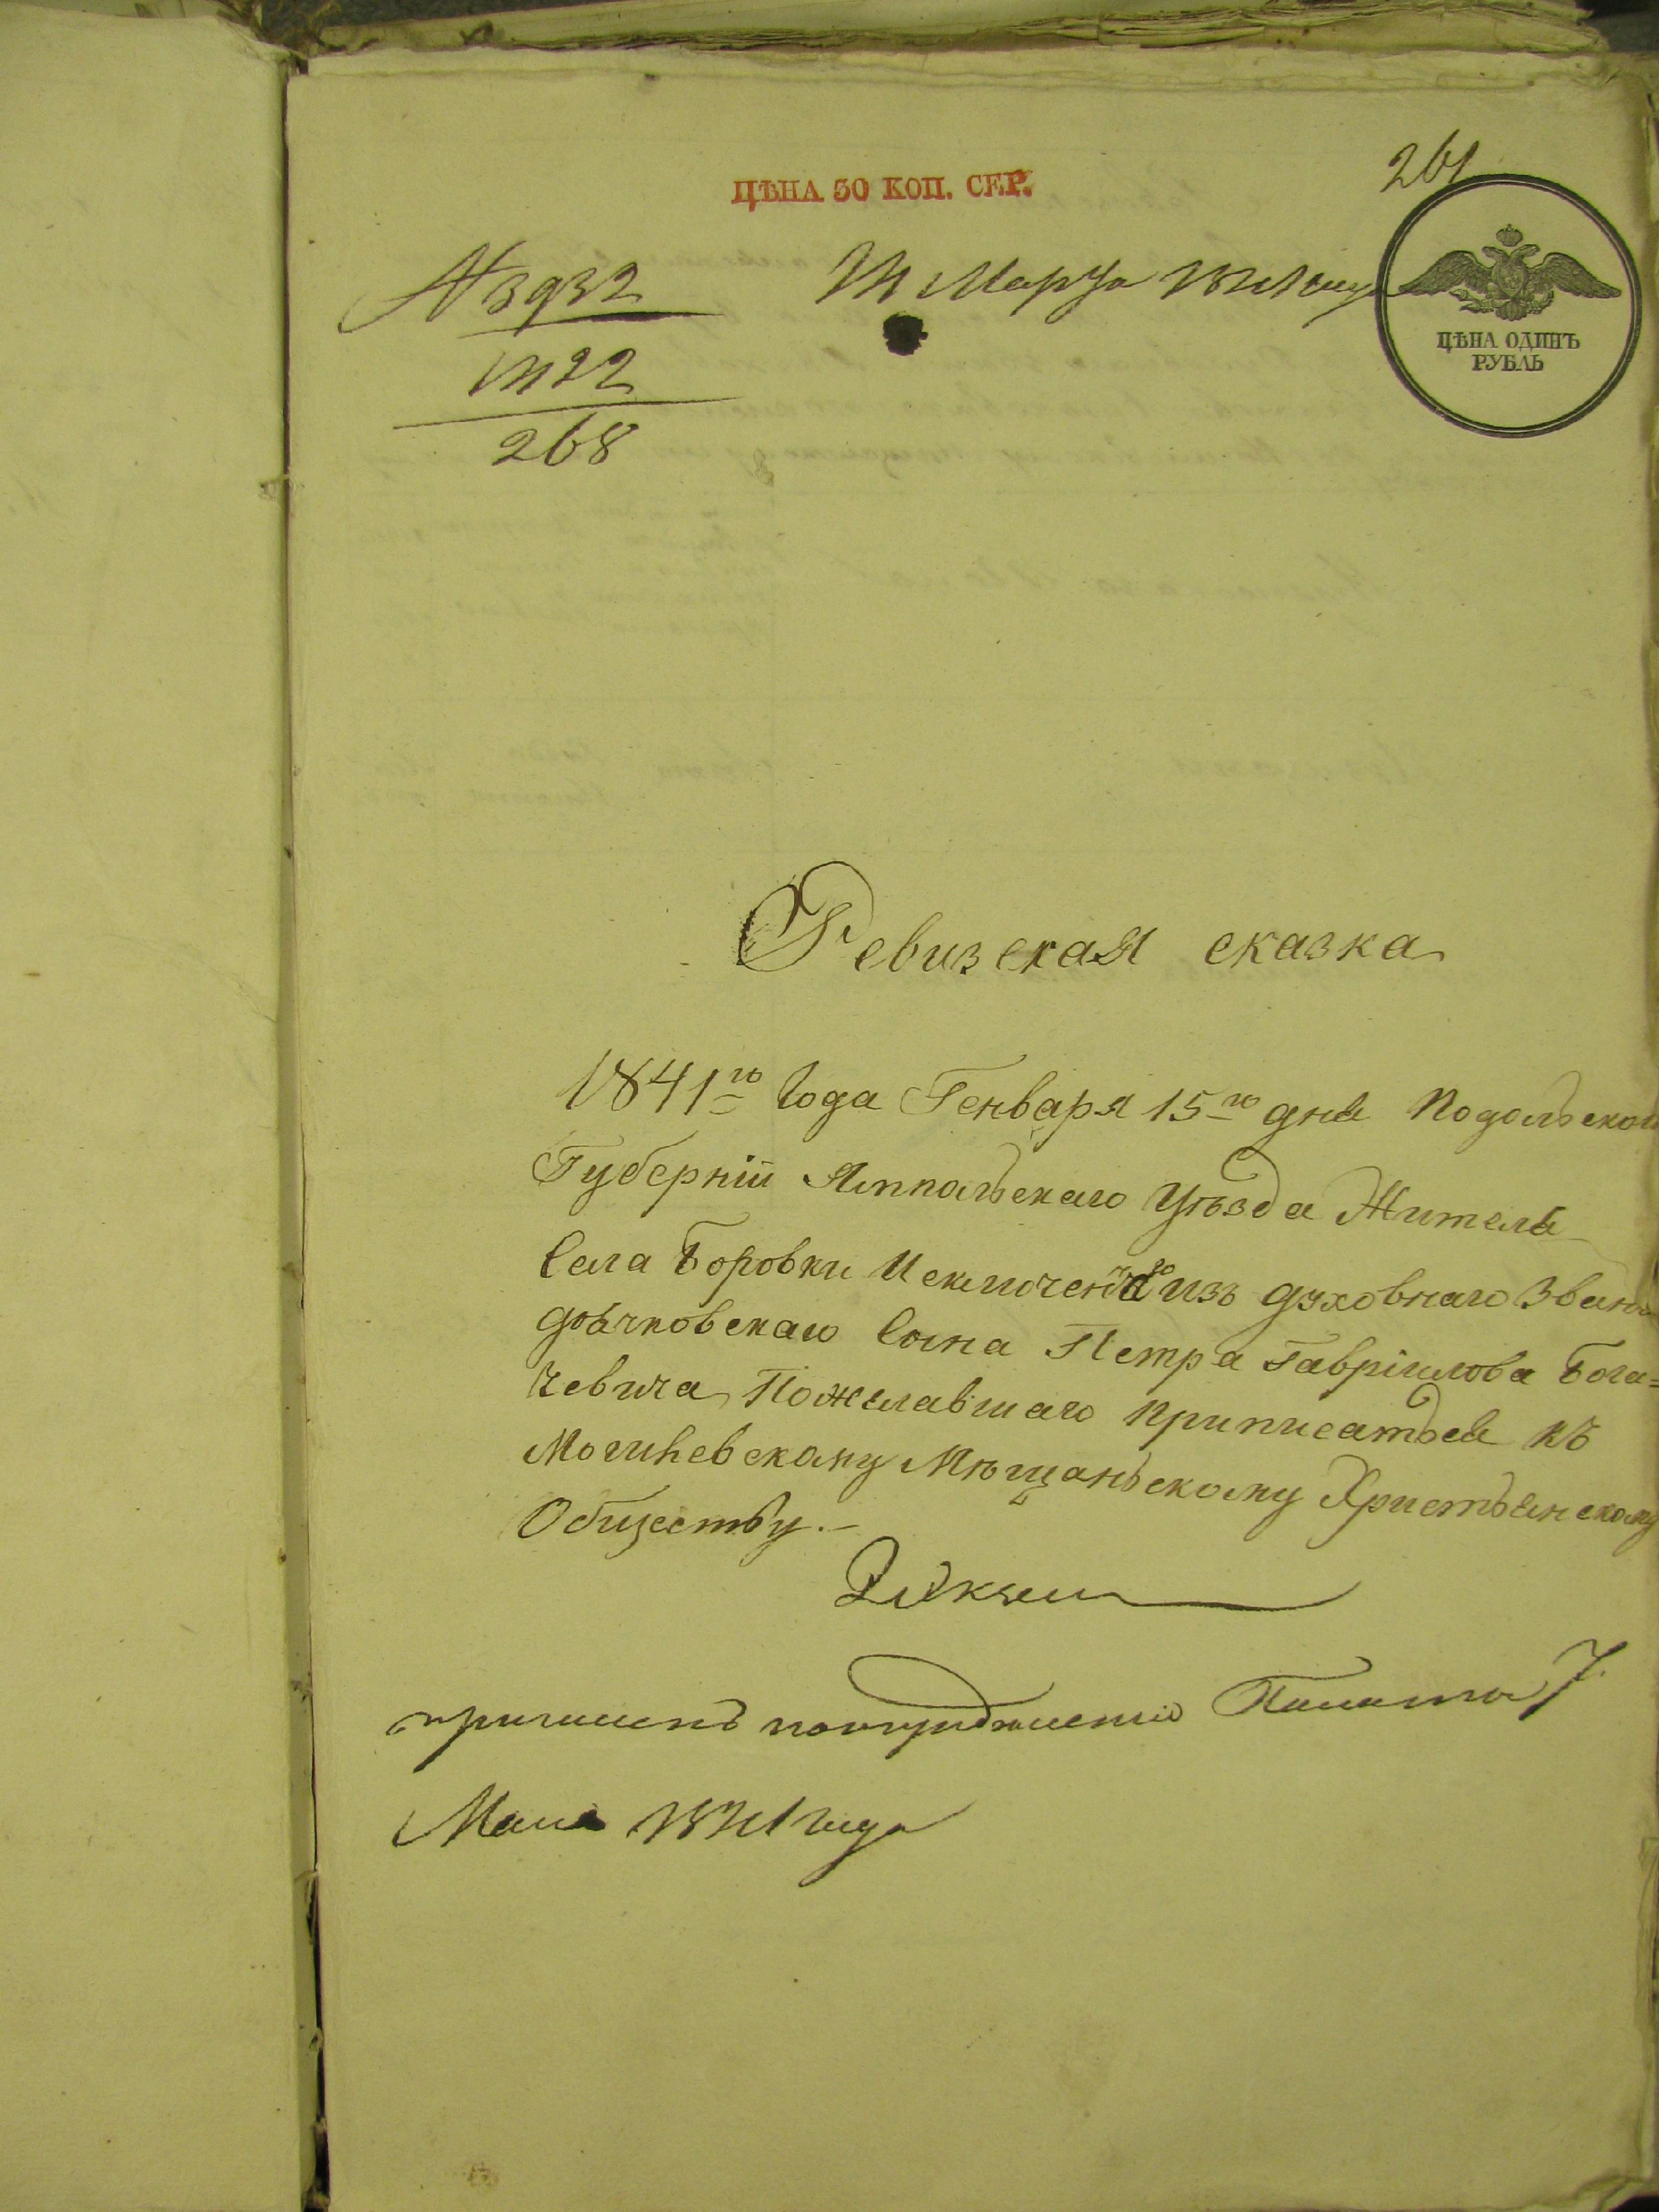 261
ЦѢНА 30 КОП. СЕР.
ЦѢНА ОДИНЪ
РУБЛЬ
№ 3932
Марта 1841 года
268
Ревизская сказка
1841го Года Генваря 15го дня Подольской
Губерніи Ямпольскаго Уѣзда Жителя
Села Боровки Исключеннаго изъ духовнаго Званія
дьячковскаго Сына Петра Гавріилова Бога=
чевича Пожелавшаго приписаться къ
Могилевскому Мѣщаньскому Христьянскому
Обществу.—
Палаты 7
Мая 1841 года